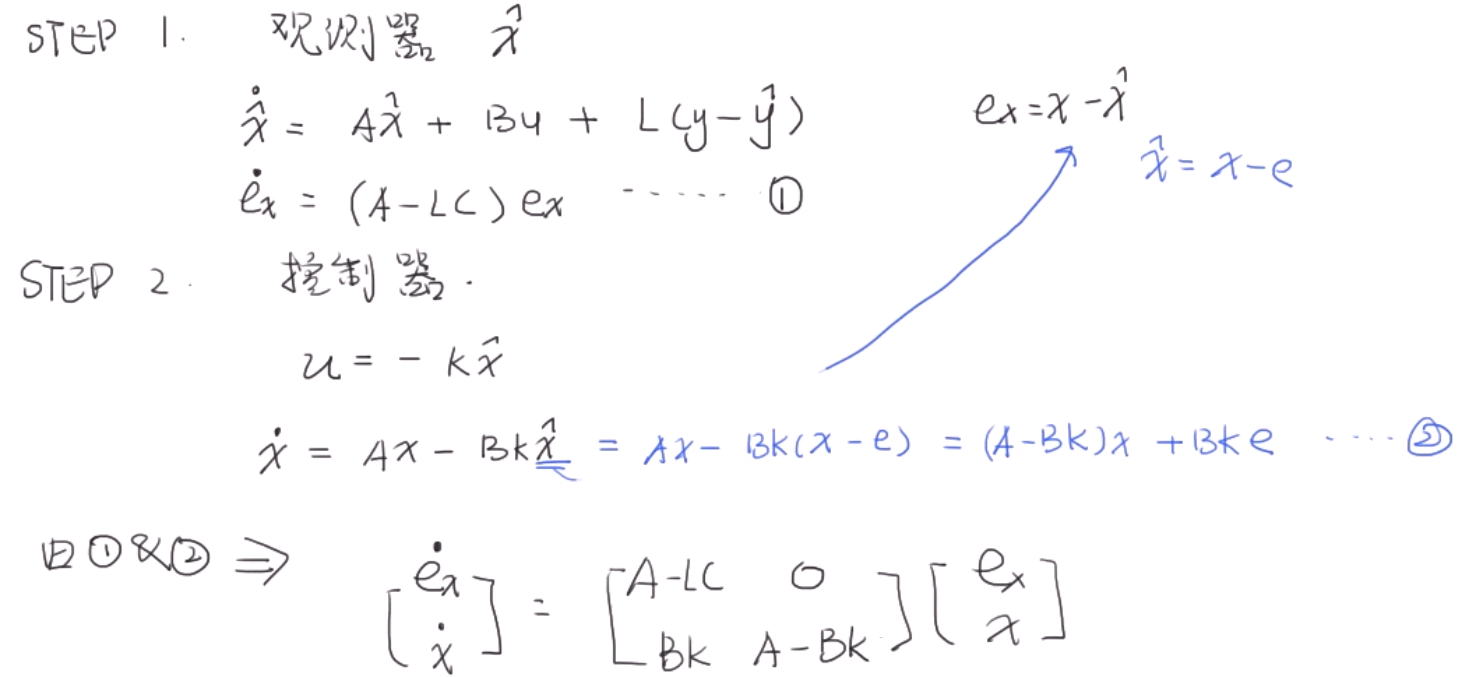 STEP 1. 观测器 x̂
x̂̇ = Ax̂ + Bu + L(y-ŷ)
eₓ = x - x̂
x̂ = x - e
ėₓ = (A-LC)eₓ ······ ①
STEP 2. 控制器.
u = - kx̂
ẋ = Ax - Bkx̂ = Ax - Bk(x-e) = (A-Bk)x + Bke ······ ②
由①&② ⇒ [ėₓ ẋ] = [A-LC 0 Bk A-Bk] [eₓ x]